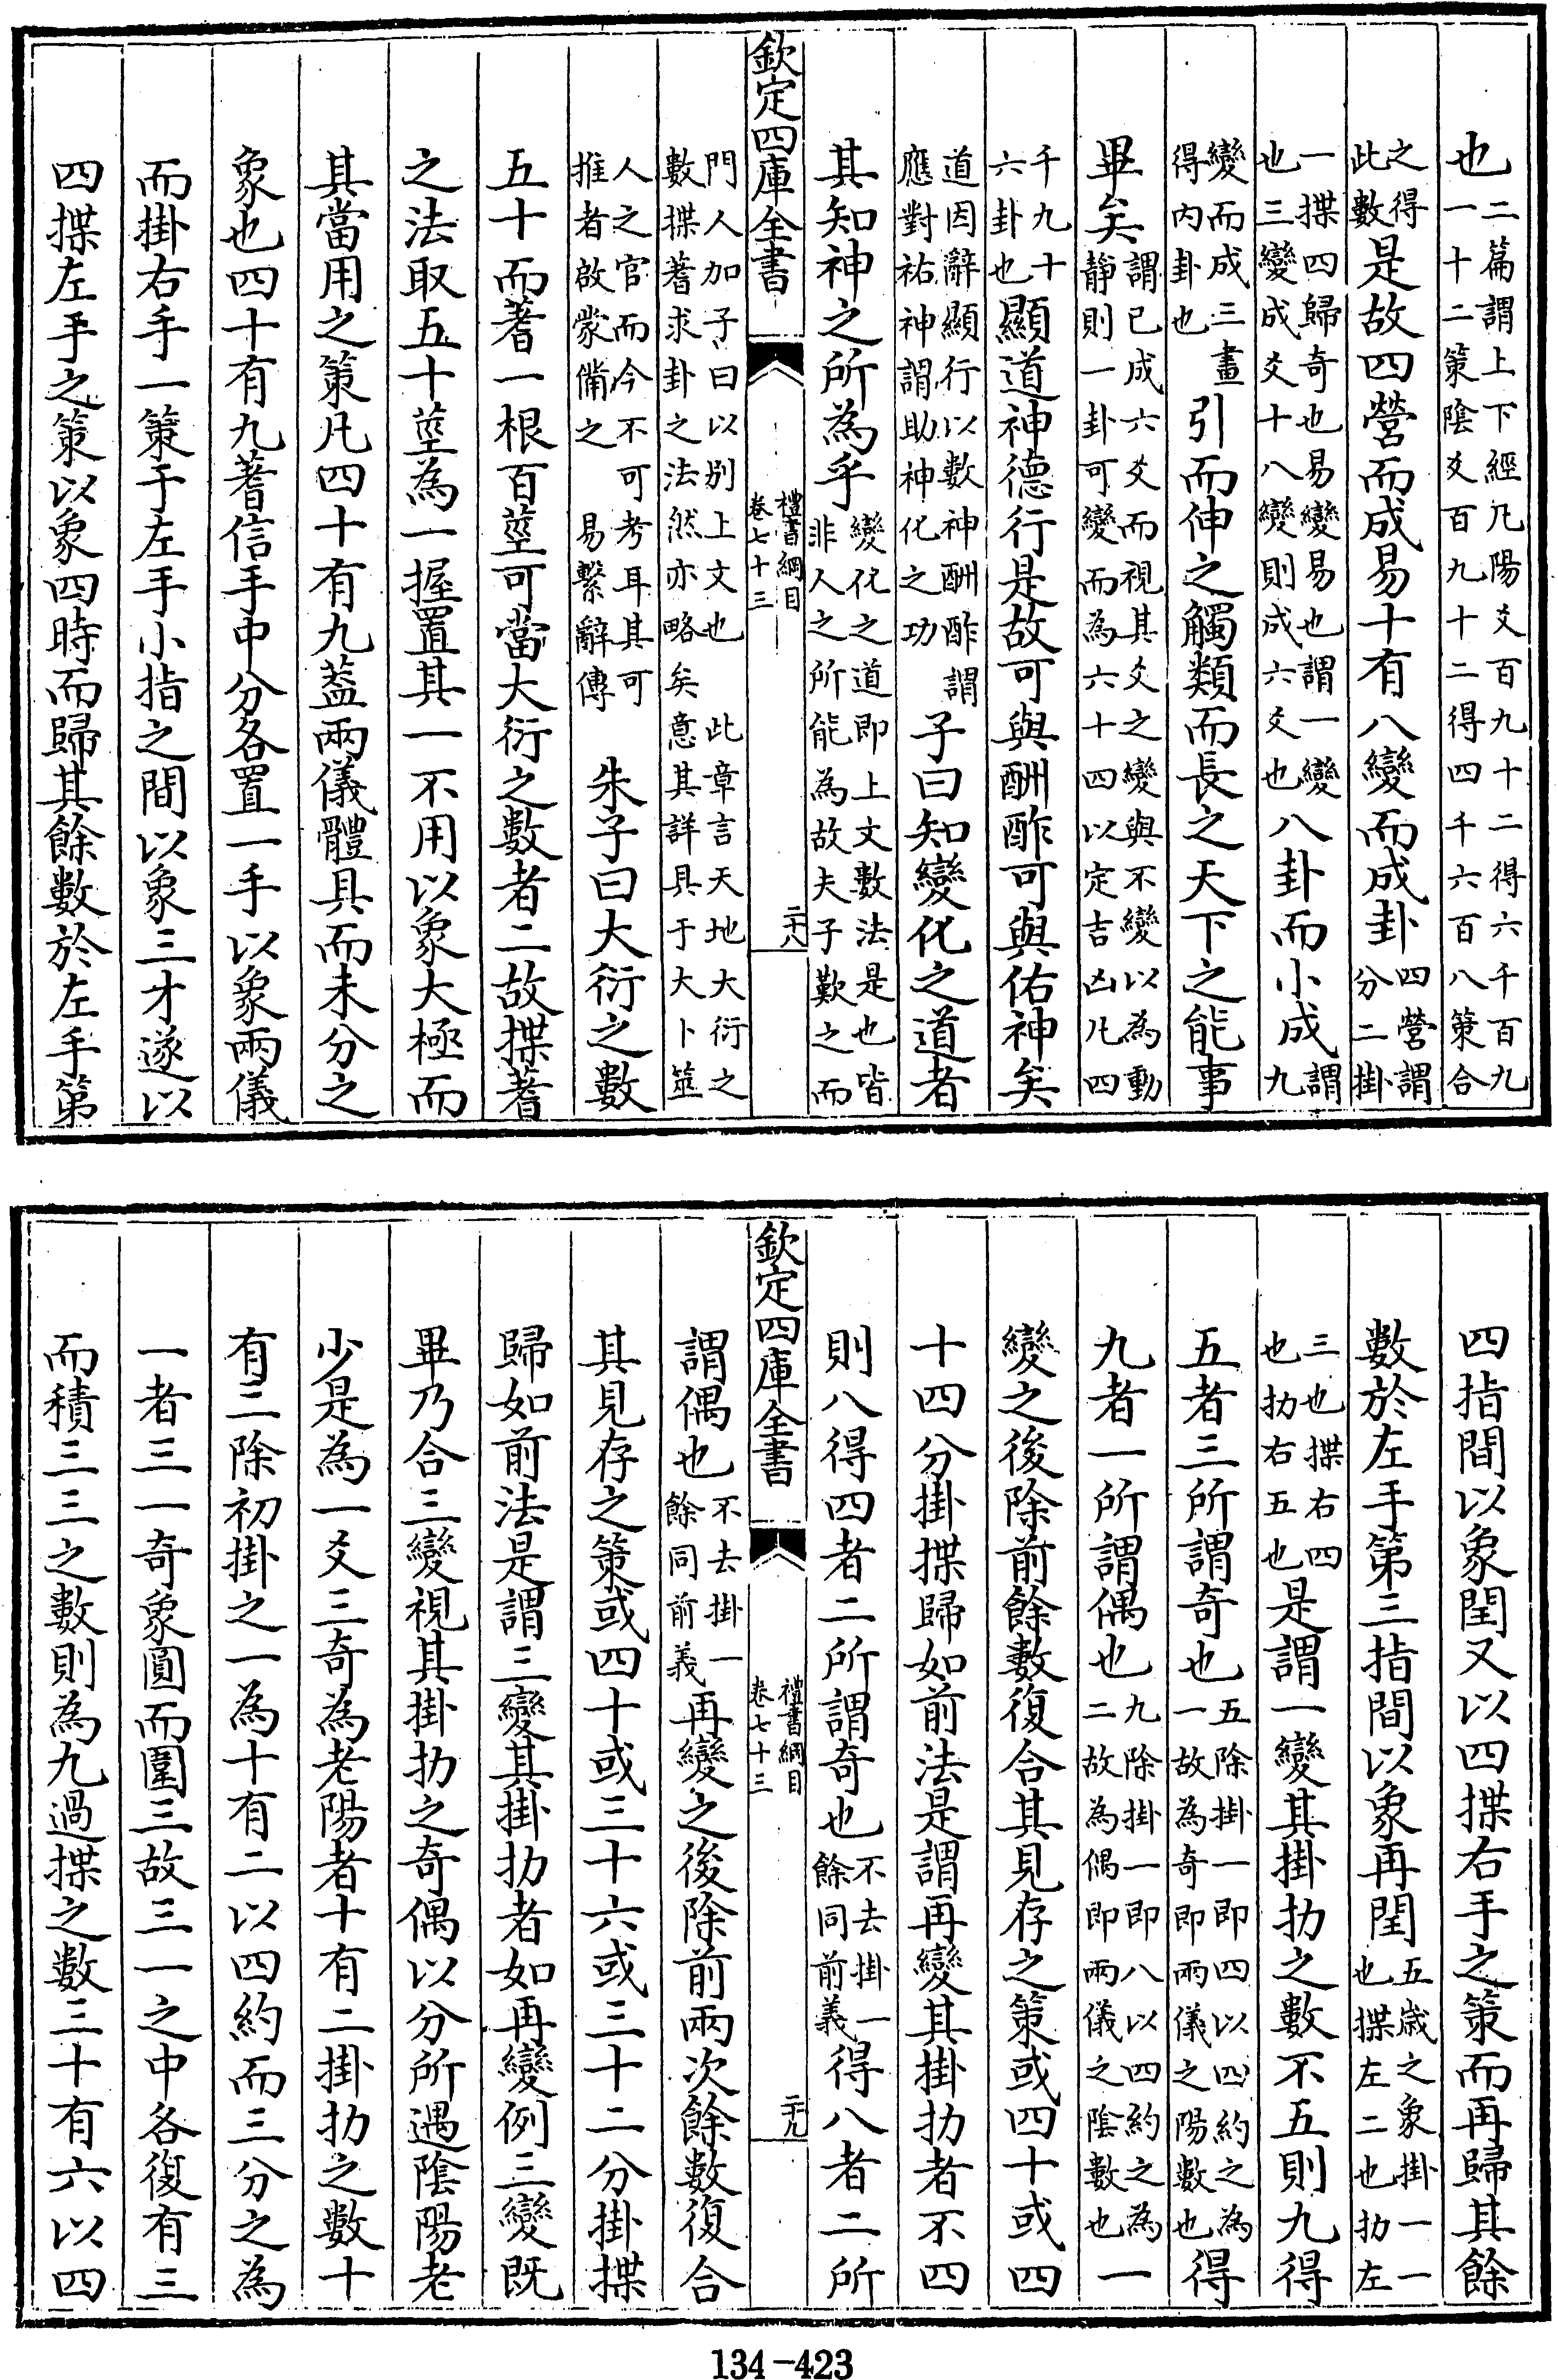 也二篇謂上下經凡陽爻百九十二得六千百九
一十二策陰爻百九十二得四千六百八策合
之得
此數是故四營而成易十有八變而成卦四營謂
分二掛
一揲四歸奇也易變易也謂一變
也三變成爻十八變則成六爻也八卦而小成謂
九
變而成三畫
得內卦也引而伸之觸類而長之天下之能事
畢矣謂已成六爻而視其爻之變與不變以為動
靜則一卦可變而為六十四以定吉凶凡四
千九十
六卦也顯道神德行是故可與酬酢可與佑神矣
道因辭顯行以數神酬酢謂
應對祐神謂助神化之功子曰知變化之道者
其知神之所為乎變化之道即上文數法是也皆
非人之所能為故夫子歎之而
欽定四庫全書
禮書綱目
卷七十三
二十八
門人加子曰以別上文也此章言天地大衍之
數揲蓍求卦之法然亦略矣意其詳具于大卜筮
人之官而今不可考耳其可
推者啟蒙備之易繫辭傳朱子曰大衍之數
五十而蓍一根百莖可當大衍之數者二故揲蓍
之法取五十莖為一握置其一不用以象大極而
其當用之策凡四十有九蓋兩儀體具而未分之
象也四十有九蓍信手中分各置一手以象兩儀
而掛右手一策于左手小指之間以象三才遂以
四揲左手之策以象四時而歸其餘數於左手第
四指間以象閏又以四揲右手之策而再歸其餘
數於左手第三指間以象再閏五歲之象掛一一
也揲左二也扐左
三也揲右四
也扐右五也是謂一變其掛扐之數不五則九得
五者三所謂奇也五除掛一即四以四約之為
一故為奇即兩儀之陽數也得
九者一所謂偶也九除掛一即八以四約之為
二故為偶即兩儀之陰數也一
變之後除前餘數復合其見存之策或四十或四
十四分掛揲歸如前法是謂再變其掛扐者不四
則八得四者二所謂奇也不去掛一
餘同前義得八者二所
欽定四庫全書
禮書綱目
卷七十三
二十九
謂偶也不去掛一
餘同前義再變之後除前兩次餘數復合
其見存之策或四十或三十六或三十二分掛揲
歸如前法是謂三變其掛扐者如再變例三變既
畢乃合三變視其掛扐之奇偶以分所遇陰陽老
少是為一爻三奇為老陽者十有二掛扐之數十
有二除初掛之一為十有二以四約而三分之為
一者三一奇象圓而圍三故三一之中各復有三
而積三三之數則為九過揲之數三十有六以四
134-423